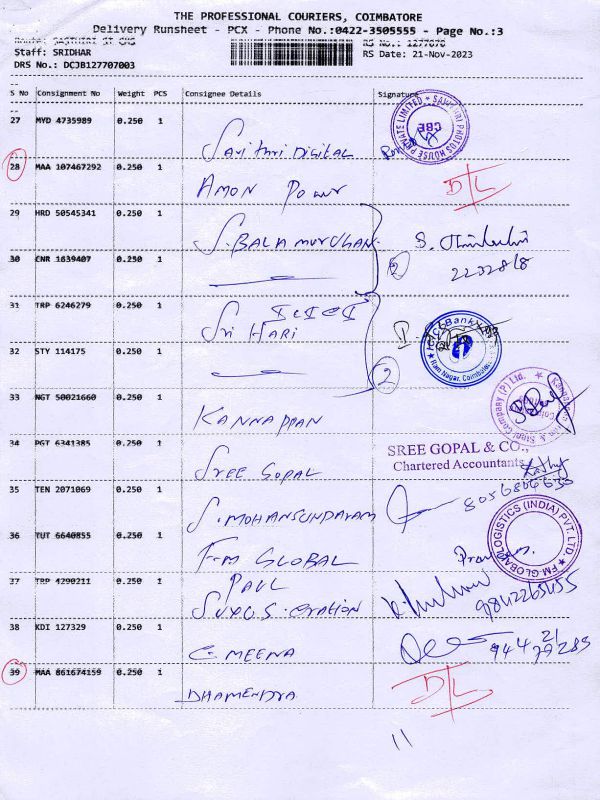 THE PROFESSIONAL COURIERS, COIMBATORE
Delivery Runsheet - PCX - Phone No.:0422-3505555 - Page No.:3
RS No.: 1277070
Staff: SRIDHAR
RS Date: 21-Nov-2023
DRS No.: DCJB127707003
S No Consignment No Weight PCS Consignee Details Signature
27 MYD 4735989 0.250 1
Savithri Digital
28 MAA 107467292 0.250 1
Amon Power
D/L
29 HRD 50545341 0.250 1
S. BALA MURUGAN
30 CNR 1639407 0.250 1
2
31 TRP 6246279 0.250 1
ICICI
Sri Hari
32 STY 114175 0.250 1
2
Ram Nagar, Coimbatore
33 NGT 50021660 0.250 1
KANNAPPAN
34 PGT 6341385 0.250 1
SREE GOPAL
SREE GOPAL & CO.,
Chartered Accountants
35 TEN 2071069 0.250 1
S. MOHANSUNDARAM
8056806630
36 TUT 6640855 0.250 1
F.M GLOBAL
FM GLOBAL LOGISTICS (INDIA) PVT. LTD.
37 TRP 4290211 0.250 1
PAUL
38 KDI 127329 0.250 1
G. MEENA
39 MAA 861674159 0.250 1
DHAMENDRA
D/L
11